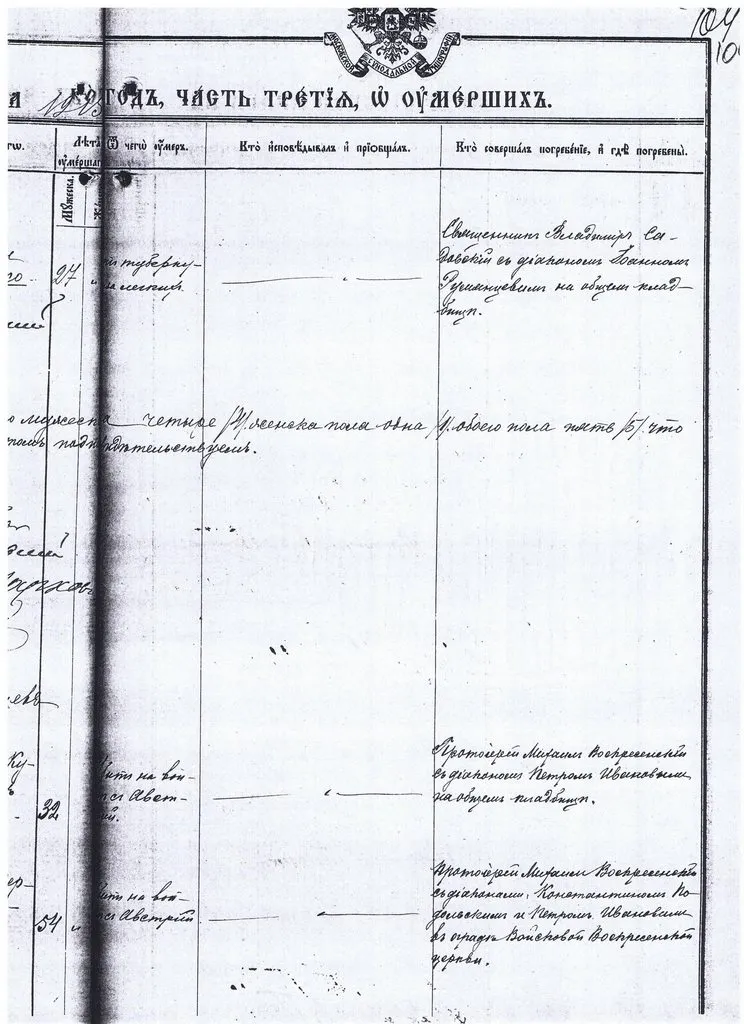 104
10
СѴНОДАЛЬНОЙ
ГОДЪ, ЧАСТЬ ТРЕТІѦ, Ѡ ОУМЕРШИХЪ.
Лѣта оумершаго.
Ѿ чегѡ оумеръ.
Кто исповѣдывалъ и пріобщалъ.
Кто совершалъ погребеніе, и гдѣ погребены.
Мужеска.
27
туберку-
легкихъ
"
Священникъ Владиміръ Са-
довскій съ діакономъ Іоанномъ
Румянцевымъ на общемъ клад-
бищѣ.
мужеска четыре /4/ женска пола одна /1/ обоего пола пять /5/ что
дѣтельствуемъ.
32
на вой-
Авст-
"
Протоіерей Михаилъ Воскресенскій
съ діакономъ Петромъ Ивановымъ
на общемъ кладбищѣ.
54
на вой-
Австріей
"
Протоіерей Михаилъ Воскресенскій
съ діаконами: Константиномъ По-
дольскимъ и Петромъ Ивановымъ
въ оградѣ Войсковой Воскресенской
церкви.